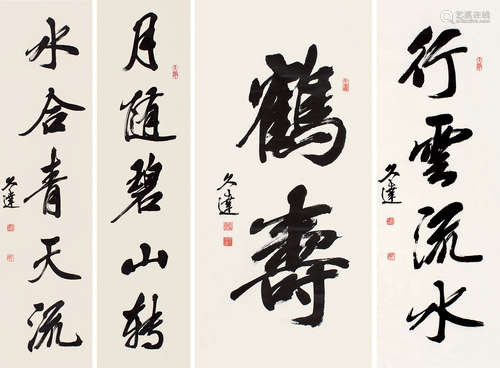 月随碧山转
水合青天流
久達
鶴壽
久達
行雲流水
久達